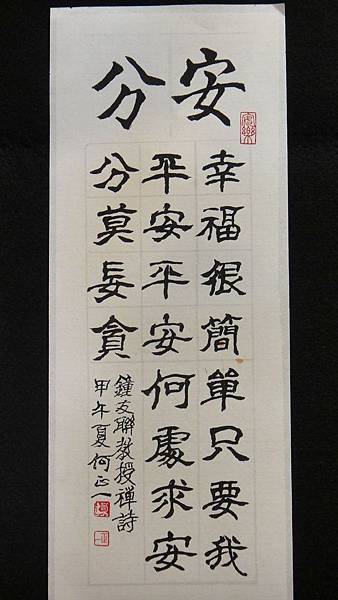 安分
幸福很簡單只要我
平安平安何處求安
分莫妄貪
鐘友聯教授禪詩
甲午夏何正一